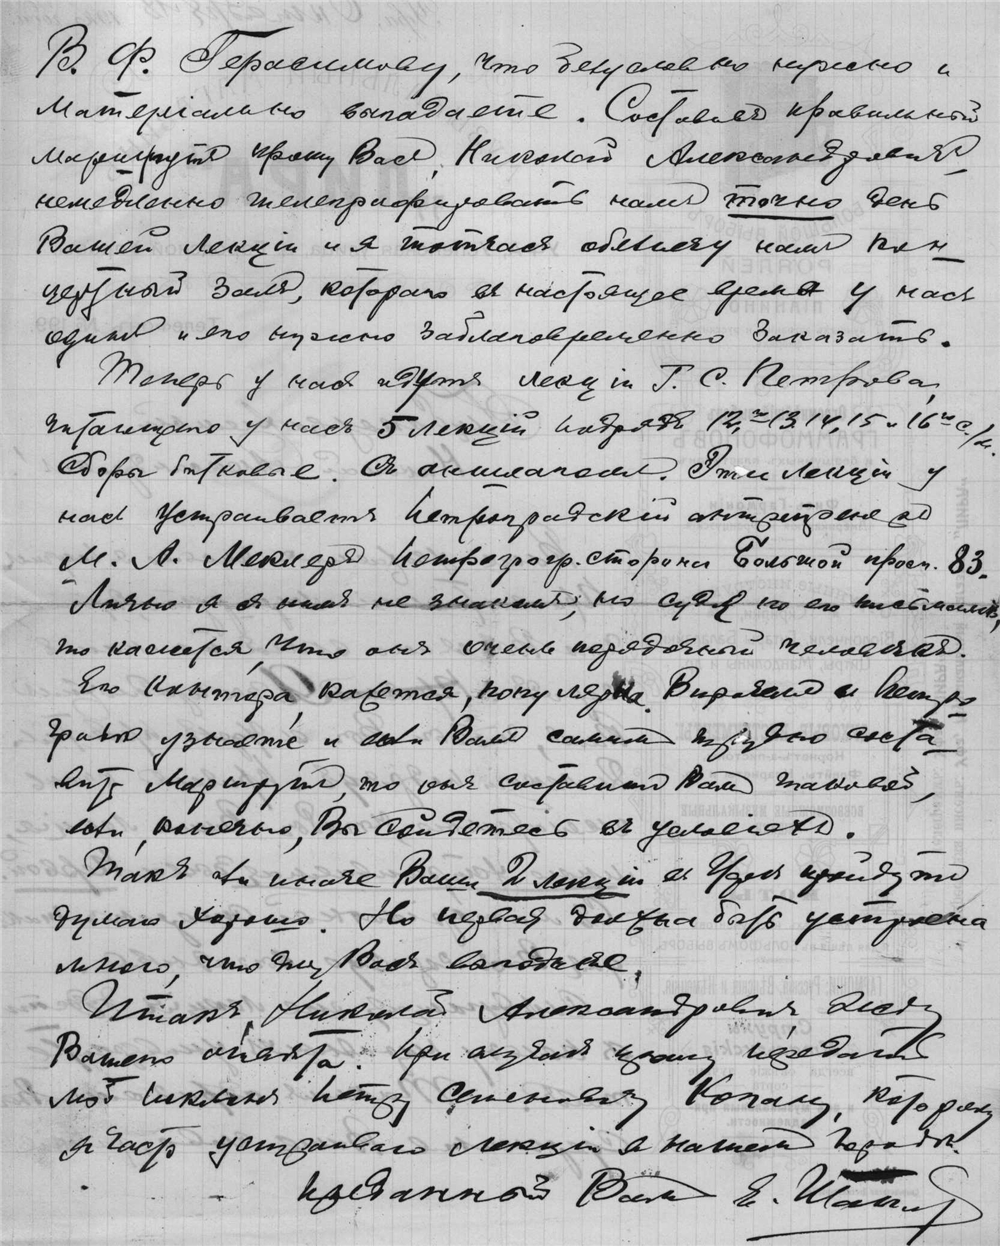 В. Ф. Герасимову, что безусловно нужно и
матеріально выгадаете. Составивъ правильный
маршрутъ прошу Васъ, Николай Александровичъ
немедленно телеграфировать намъ точно день
Вашей лекціи и я тотчасъ объявлю намъ кон
цертный залъ, котораго въ настоящее время у насъ
одинъ и его нужно заблаговременно заказать.
Теперь у насъ идутъ лекціи Г. С. Петрова,
читающаго у насъ 5 лекцій подрядъ 12, 13, 14, 15 и 16го с/м.
Сборы битковые. Съ аншлагомъ. Эти лекціи у
насъ устраиваетъ Петроградскій антрепренеръ
М. А. Меклеръ Петрогр. сторона Большой просп. 83.
Лично я съ нимъ не знакомъ, но судя по его письмамъ,
то кажется, что онъ очень порядочный человѣкъ.
Его контора, кажется, популярна. Впрочемъ въ Петро
градѣ узнаете и если Вамъ самимъ трудно соста
вить маршрутъ, то онъ составитъ Вамъ таковой,
если, конечно, Вы сойдетесь въ условіяхъ.
Такъ или иначе Ваши 2 лекціи въ пройдутъ
думаю хорошо. Но первая должна быть устроена
мною, что для Васъ выгоднѣе.
Итакъ, Николай Александровичъ жду
Вашего отвѣта. При случаѣ прошу передать
мой поклонъ Петру Семеновичу Когану, которому
я часто устраивалъ лекціи въ нашемъ городѣ.
Преданный Вамъ